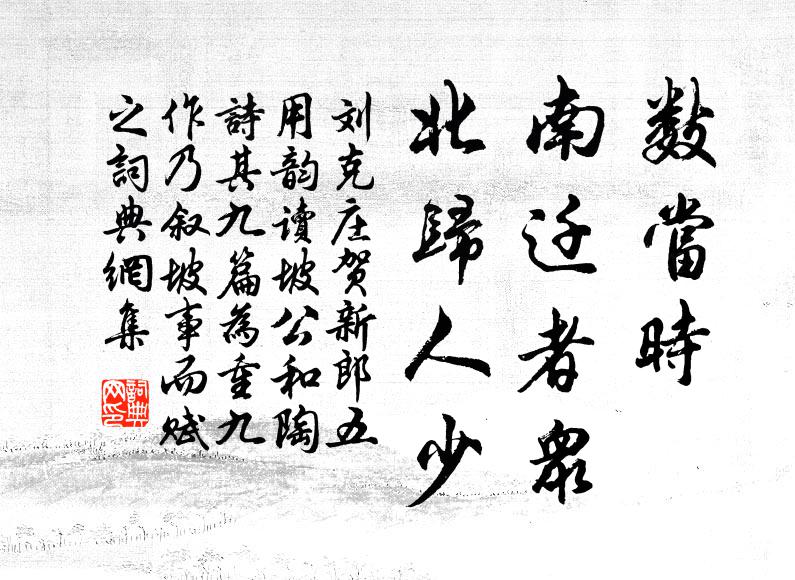 數當時
南迁者衆
北歸人少
刘克庄贺新郎五
用韵讀坡公和陶
詩其九篇為重九
作乃叙坡事而赋
之詞典網集
詞典
网印